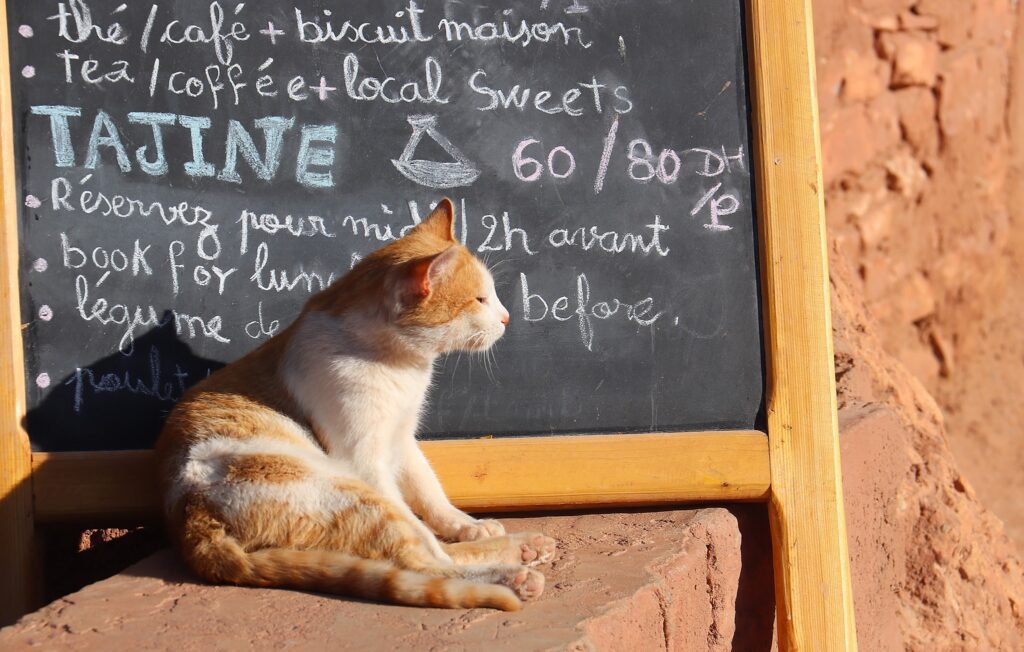 • thé / café + biscuit maison
• Tea / coffée + local Sweets
TAJINE 60 / 80 DH /P
• Réservez pour midi / 2h avant
• book for before.
• légume
• poulet